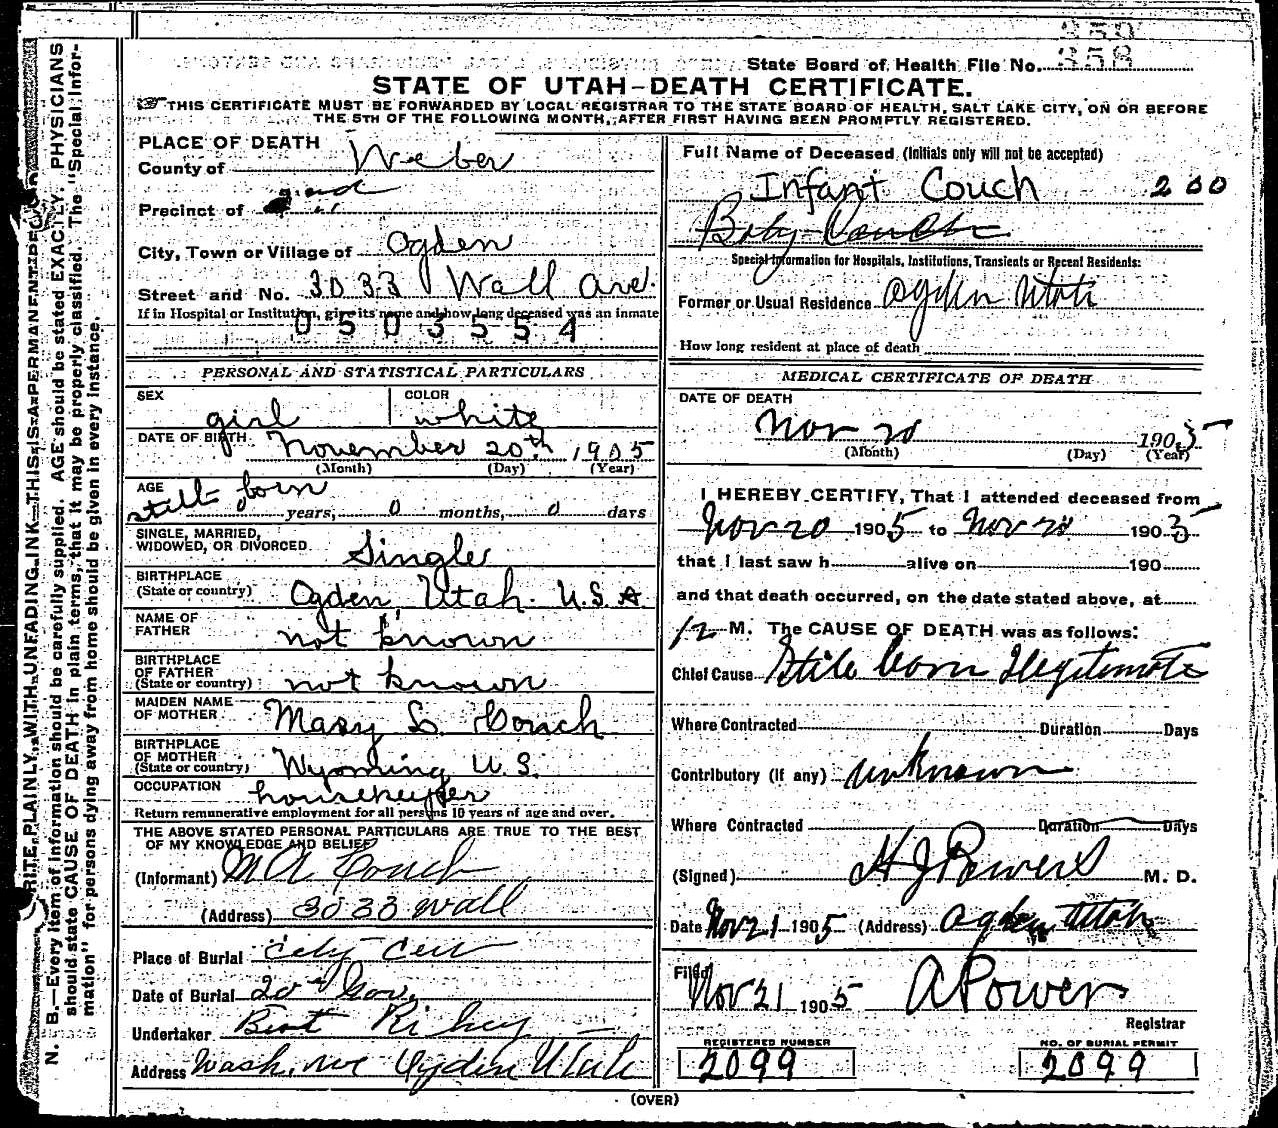 358
State Board of Health File No. 358
STATE OF UTAH-DEATH CERTIFICATE.
THIS CERTIFICATE MUST BE FORWARDED BY LOCAL REGISTRAR TO THE STATE BOARD OF HEALTH, SALT LAKE CITY, ON OR BEFORE
THE 5TH OF THE FOLLOWING MONTH, AFTER FIRST HAVING BEEN PROMPTLY REGISTERED.
N. B.—Every item of information should be carefully supplied. AGE should be stated EXACTLY. PHYSICIANS
should state CAUSE OF DEATH in plain terms, that it may be properly classified. The "Special Infor-
mation" for persons dying away from home should be given in every instance.
WRITE PLAINLY WITH UNFADING INK—THIS IS A PERMANENT RECORD
PLACE OF DEATH
County of Weber
Precinct of
City, Town or Village of Ogden
Street and No. 3033 Wall Ave.
If in Hospital or Institution, give its name and how long deceased was an inmate
0503554
PERSONAL AND STATISTICAL PARTICULARS
SEX girl COLOR white
DATE OF BIRTH November 20th, 1905
(Month) (Day) (Year)
AGE still born years, 0 months, 0 days
SINGLE, MARRIED,
WIDOWED, OR DIVORCED Single
BIRTHPLACE
(State or country) Ogden, Utah. U.S.A.
NAME OF
FATHER not known
BIRTHPLACE
OF FATHER
(State or country) not known
MAIDEN NAME
OF MOTHER Mary L. Couch
BIRTHPLACE
OF MOTHER
(State or country) Wyoming U.S.
OCCUPATION housekeyper
Return remunerative employment for all persons 10 years of age and over.
THE ABOVE STATED PERSONAL PARTICULARS ARE TRUE TO THE BEST
OF MY KNOWLEDGE AND BELIEF
(Informant) M A Couch
(Address) 3033 Wall
Place of Burial City Cem
Date of Burial 20th Nov.
Undertaker Bert Richey
Address Wash. Ave Ogden Utah
Full Name of Deceased (Initials only will not be accepted)
Infant Couch 200
Baby Couch
Special Information for Hospitals, Institutions, Transients or Recent Residents:
Former or Usual Residence Ogden Utah
How long resident at place of death
MEDICAL CERTIFICATE OF DEATH
DATE OF DEATH
Nov 20 1905
(Month) (Day) (Year)
I HEREBY CERTIFY, That I attended deceased from
Nov 20 1905 to Nov 20 1905
that I last saw h alive on 190
and that death occurred, on the date stated above, at
12 M. The CAUSE OF DEATH was as follows:
Chief Cause Still born Illegitimate
Where Contracted Duration Days
Contributory (if any) unknown
Where Contracted Duration Days
(Signed) H J Powers M. D.
Date Nov 21 1905 (Address) Ogden Utah
Filed Nov 21 1905 A Power
Registrar
REGISTERED NUMBER
2099
NO. OF BURIAL PERMIT
2099
(OVER)